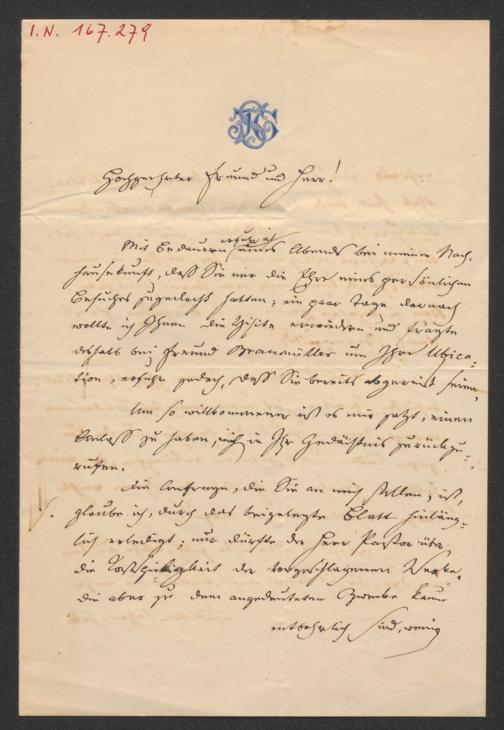 I.N. 167.279
Hochgeehrter Freund und Herr!
Mit Bedauern erfuhr ich eines Abends bei meiner Nach-
hausekunft, daß Sie mir die Ehre eines persönlichen
Besuches zugedacht hatten; ein paar Tage darnach
wollte ich Ihnen die Visite erwiedern und fragte
deshalb bei Freund Braumüller um Ihre Ubica-
tion, erfuhr jedoch, daß Sie bereits abgereist seien.
Um so willkommener ist es mir jetzt, einen
Anlass zu haben, mich in Ihr Gedächtnis zurückzu-
rufen.
Die Anfrage, die Sie an mich stellen, ist,
glaube ich, durch das beigelegte Blatt hinläng-
lich erledigt; nur dürfte der Herr Pastor über
die Kostspieligkeit der vorgeschlagenen Werke,
die aber zu dem angedeuteten Zwecke kaum
entbehrlich sind, wenig